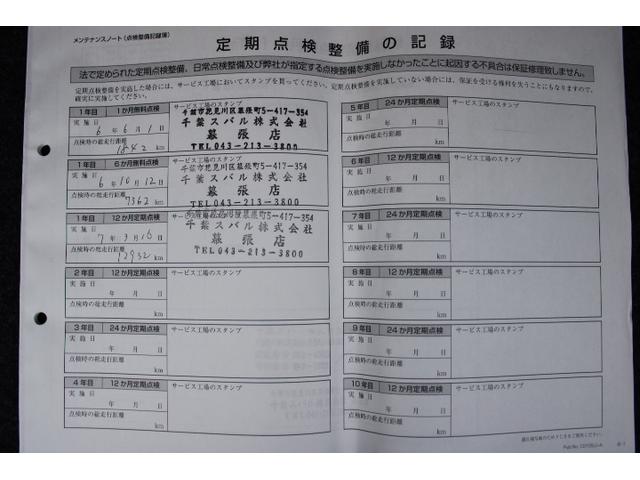 メンテナンスノート(点検整備記録簿)
定期点検整備の記録
法で定められた定期点検整備、日常点検整備及び弊社が指定する点検整備を実施しなかったことに起因する不具合は保証修理致しません。
定期点検整備を実施した場合には、サービス工場においてスタンプを貰ってください。定期点検整備を実施していない場合には、保証を受ける権利を失うことにもなりますので、
確実に実施してください。
1年目 1か月無料点検 サービス工場のスタンプ
実施日
6年6月1日
点検時の総走行距離
1842 km
千葉市花見川区幕張町5-417-354
千葉スバル株式会社
幕張店
TEL.043-213-3800
1年目 6か月無料点検 サービス工場のスタンプ
実施日
6年10月12日
点検時の総走行距離
7362 km
千葉市花見川区幕張町5-417-354
千葉スバル株式会社
幕張店
TEL.043-213-3800
1年目 12か月定期点検
実施日
7年3月16日
点検時の総走行距離
12952 km
千葉市花見川区幕張町5-417-354
千葉スバル株式会社
幕張店
TEL.043-213-3800
2年目 12か月定期点検 サービス工場のスタンプ
実施日
年 月 日
点検時の総走行距離
km
3年目 24か月定期点検 サービス工場のスタンプ
実施日
年 月 日
点検時の総走行距離
km
4年目 12か月定期点検 サービス工場のスタンプ
実施日
年 月 日
点検時の総走行距離
km
5年目 24か月定期点検 サービス工場のスタンプ
実施日
年 月 日
点検時の総走行距離
km
6年目 12か月定期点検 サービス工場のスタンプ
実施日
年 月 日
点検時の総走行距離
km
7年目 24か月定期点検 サービス工場のスタンプ
実施日
年 月 日
点検時の総走行距離
km
8年目 12か月定期点検 サービス工場のスタンプ
実施日
年 月 日
点検時の総走行距離
km
9年目 24か月定期点検 サービス工場のスタンプ
実施日
年 月 日
点検時の総走行距離
km
10年目 12か月定期点検 サービス工場のスタンプ
実施日
年 月 日
点検時の総走行距離
km